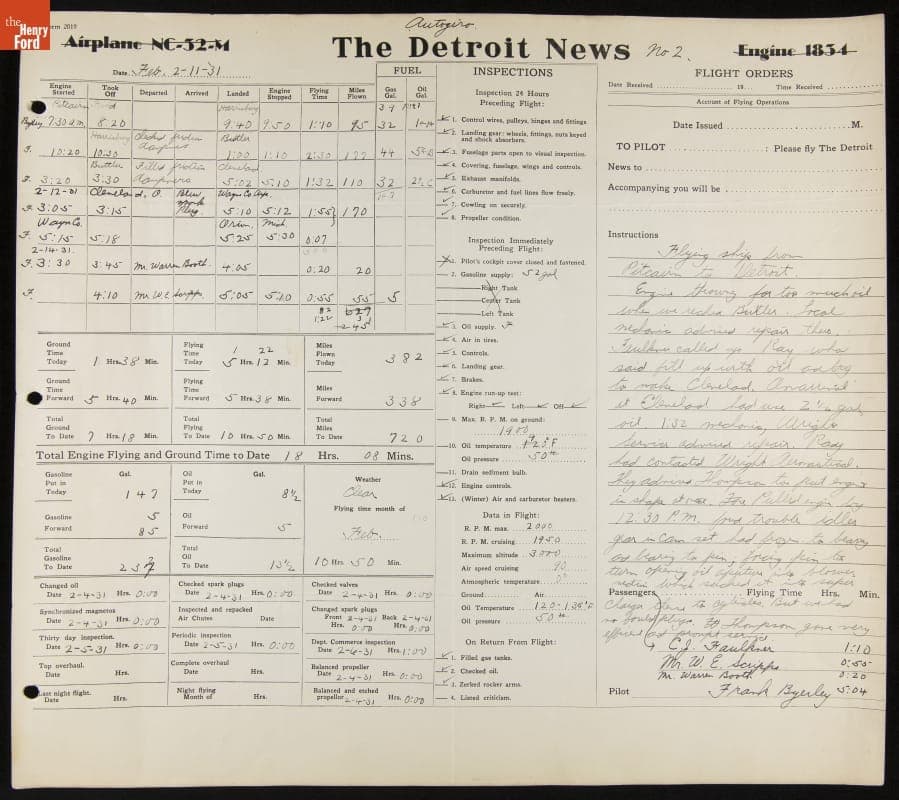 the
Henry
Ford
Form 2019
Autogiro
Airplane NC-52-M
The Detroit News
No 2.
Engine 1834
Date Feb. 2-11-31
FUEL
INSPECTIONS
FLIGHT ORDERS
Engine Started Took Off Departed Arrived Landed Engine Stopped Flying Time Miles Flown Gas Gal. Oil Gal.
Date Received 19 Time Received
Account of Flying Operations
Pitcairn Field Harrisburg
Byerley 7:30 a.m. 8:20 9:40 9:50 1:10 95 32
Harrisburg Butler
F. 10:20 10:30 1:00 1:10 2:30 177 44
Butler Cleveland
F. 3:20 3:30 5:02 5:10 1:32 110 32
2-12-31 Cleveland, O. Wayn Co. Arp.
F. 3:05 3:15 5:10 5:12 1:55 170
Wayn Co. Orion, Mich.
F. 5:15 5:18 5:25 5:30 0:07
2-14-31.
F. 3:30 3:45 Mr. Warren Booth 4:05 0:20 20
F. 4:10 Mr. W.E. Scripps. 5:05 5:10 0:55 55 5
Ground Time Today 1 Hrs. 38 Min.
Flying Time Today 5 Hrs. 12 Min. 1 22
Miles Flown Today 382
Ground Time Forward 5 Hrs. 40 Min.
Flying Time Forward 5 Hrs. 38 Min.
Miles Forward 338
Total Ground To Date 7 Hrs. 18 Min.
Total Flying To Date 10 Hrs. 50 Min.
Total Miles To Date 720
Total Engine Flying and Ground Time to Date 18 Hrs. 08 Mins.
Gasoline Put in Today Gal. 147
Oil Put in Today Gal. 8½
Weather Clear
Flying time month of Feb.
Gasoline Forward 85
Oil Forward 5
Total Gasoline To Date
Total Oil To Date 13½
10 Hrs. 50 Min.
Changed oil Date 2-4-31 Hrs. 0:00
Checked spark plugs Date 2-4-31 Hrs. 0:00
Checked valves Date 2-4-31 Hrs. 0:00
Synchronized magnetos Date 2-4-31 Hrs. 0:00
Inspected and repacked Air Chutes Date
Changed spark plugs Front 2-4-31 Back 2-4-31 Hrs. 0:00 Hrs. 0:00
Thirty day inspection. Date 2-5-31 Hrs. 0:00
Periodic inspection Date 2-5-31 Hrs. 0:00
Dept. Commerce inspection Date 2-6-31 Hrs. 1:00
Top overhaul. Date Hrs.
Complete overhaul Date Hrs.
Balanced propeller Date 2-4-31 Hrs. 0:00
Last night flight. Date Hrs.
Night flying Month of Hrs.
Balanced and etched propeller 2-4-31 Hrs. 0:00
Inspection 24 Hours
Preceding Flight:
1. Control wires, pulleys, hinges and fittings
2. Landing gear: wheels, fittings, nuts keyed
and shock absorbers.
3. Fuselage parts open to visual inspection.
4. Covering, fuselage, wings and controls.
5. Exhaust manifolds.
6. Carburetor and fuel lines flow freely.
7. Cowling on securely.
8. Propeller condition.
Inspection Immediately
Preceding Flight:
1. Pilot's cockpit cover closed and fastened.
2. Gasoline supply: 52 gal
Right Tank
Center Tank
Left Tank
3. Oil supply.
4. Air in tires.
5. Controls.
6. Landing gear.
7. Brakes.
8. Engine run-up test:
Right Left Off
9. Max. R. P. M. on ground:
1900
10. Oil temperature
Oil pressure 50#
11. Drain sediment bulb.
12. Engine controls.
13. (Winter) Air and carburetor heaters.
Data in Flight:
R. P. M. max. 2000
R. P. M. cruising 1950
Maximum altitude 3,000
Air speed cruising 90
Atmospheric temperature
Ground Air
Oil Temperature 120-135°F
Oil pressure 50#
On Return From Flight:
1. Filled gas tanks.
2. Checked oil.
3. Zerked rocker arms.
4. Listed criticism.
Date Issued M.
TO PILOT : Please fly The Detroit
News to
Accompanying you will be
Instructions
Flying ship from
Pitcairn to Detroit.
Engine throwing far too much oil
when we reached Butler. Local
mechanic advised repair there.
Faulkner called up Ray who
said fill up with oil and try
to make Cleveland. On arrival
at Cleveland had used 2½ gal
oil. 1:32 mechanic, Wright
Service advised repair. Ray
had contacted Wright Aeronautical.
They advised Thompson to put engine
in shape at once. The Pulled engine by
12:30 P.M. found trouble idler
gear in cam
Passengers Flying Time Hrs. Min.
C.J. Faulkner 1:10
Mr. W. E. Scripps 0:55
Mr. Warren Booth 0:20
Pilot Frank Byerley 5:04